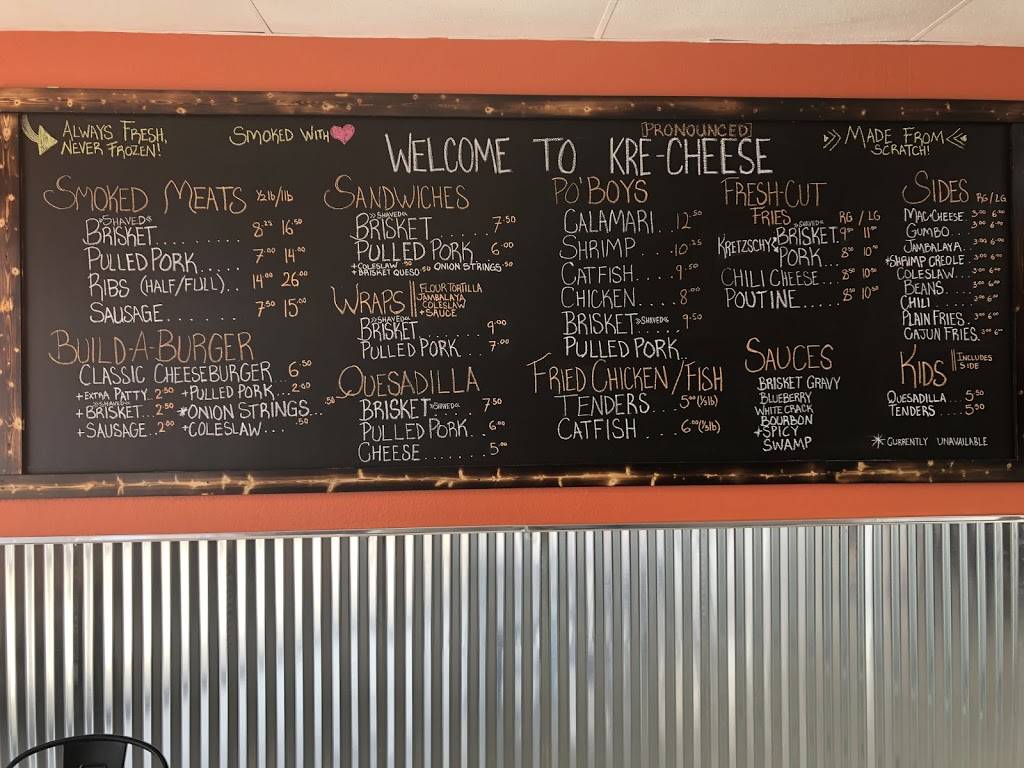 ALWAYS FRESH,
NEVER FROZEN!
SMOKED WITH
[PRONOUNCED]
WELCOME TO KRE-CHEESE
MADE FROM
SCRATCH!
SMOKED MEATS ½lb/lb
»SHAVED«
BRISKET......... 8.25 16.50
PULLED PORK...... 7.00 14.00
RIBS (HALF/FULL).. 14.00 26.00
SAUSAGE........ 7.50 15.00
BUILD-A-BURGER
CLASSIC CHEESEBURGER...6.50
+EXTRA PATTY 2.50 +PULLED PORK..2.00
»SHAVED«
+BRISKET...2.50 *ONION STRINGS... .50
+SAUSAGE..2.00 *COLESLAW.... .50
SANDWICHES
»SHAVED«
BRISKET........7.50
PULLED PORK 6.00
+COLESLAW .50
+BRISKET QUESO .50 ONION STRINGS .50
WRAPS
FLOUR TORTILLA
JAMBALAYA
COLESLAW
+SAUCE
»SHAVED«
BRISKET...... 9.00
PULLED PORK ... 7.00
QUESADILLA
BRISKET »SHAVED« 7.50
PULLED PORK...6.00
CHEESE........5.00
PO'BOYS
CALAMARI...12.50
SHRIMP.....10.25
CATFISH....9.50
CHICKEN....8.00
BRISKET »SHAVED« 9.50
PULLED PORK..
FRIED CHICKEN/FISH
TENDERS....5.00(⅓lb)
CATFISH....6.00(⅓lb)
FRESH-CUT
FRIES RG / LG
KRETZSCHY'S
»SHAVED«
BRISKET. 9.50 11.50
PORK... 8.50 10.50
CHILI CHEESE.. 8.50 10.50
POUTINE...... 8.50 10.50
SAUCES
BRISKET GRAVY
BLUEBERRY
WHITE CRACK
BOURBON
+SPICY
SWAMP
SIDES RG/LG
MAC+CHEESE. 3.00 6.00
GUMBO.... 3.00 6.00
JAMBALAYA.. 3.00 6.00
*SHRIMP CREOLE. 3.00 6.00
COLESLAW.... 3.00 6.00
BEANS...... 3.00 6.00
CHILI...... 3.00 6.00
PLAIN FRIES.. 3.00 6.00
CAJUN FRIES. 3.00 6.00
KIDS
INCLUDES
SIDE
QUESADILLA....5.50
TENDERS.....5.50
*CURRENTLY UNAVAILABLE